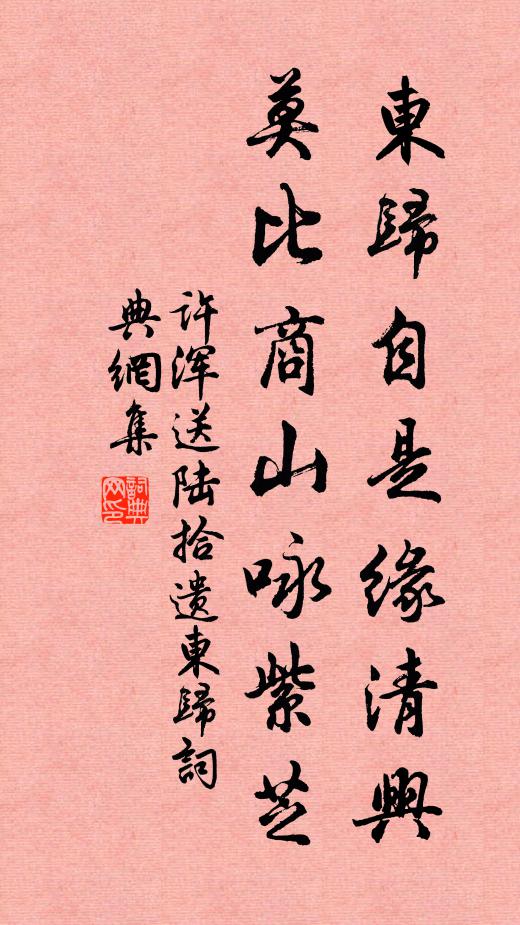 東歸自是緣清興
莫比商山咏紫芝
许浑送陆拾遗東歸詞
典網集
詞典网印